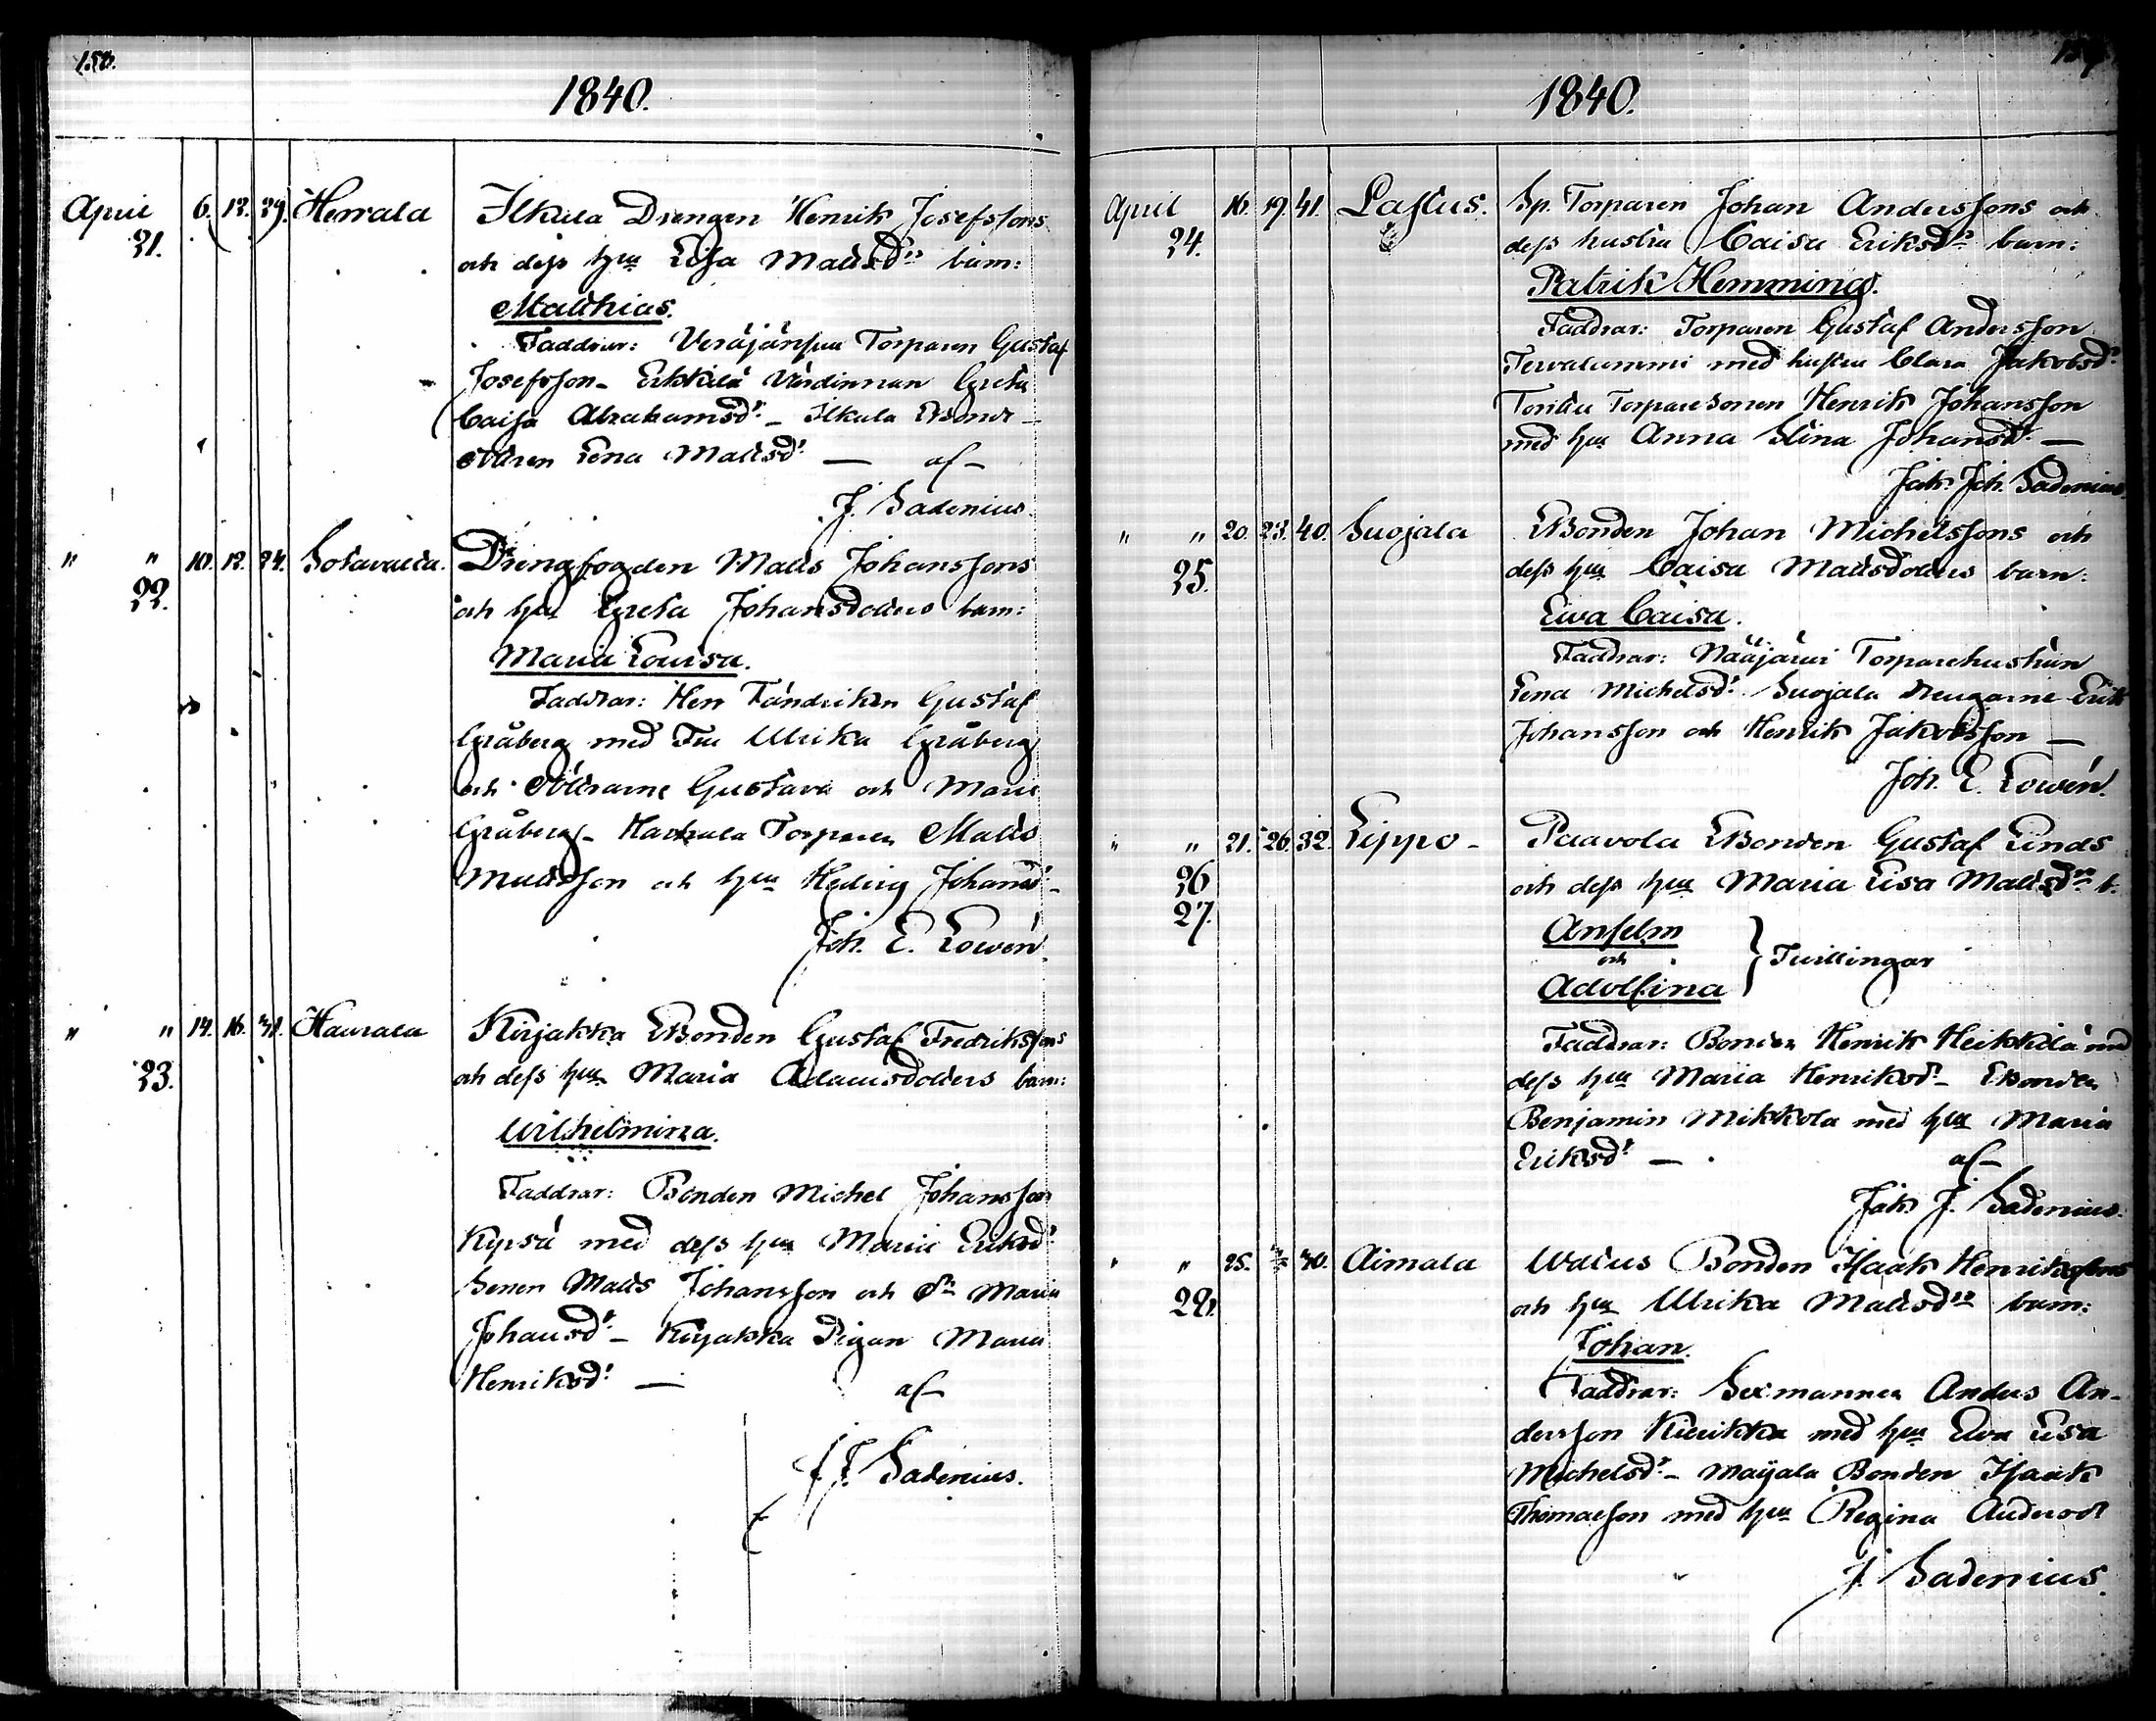 158.
1840.
April 6. 12. 29. Herrala Ilkula Drengen Henrik Josefssons
21. och dess hu Lisa Matsdrs barn:
Matthias.
Faddrar: Torparen Gustaf
Josefsson - Erkkilä Värdinnan Greta
Caisa Abrahamsdr - Ilkula Bonde-
Mören Lena Matsdr — af
J. Sadenius.
" " 10. 12. 24. Sotavalta. Drengfogden Matts Johanssons
22. och hu Greta Johansdotters barn:
Maria Lovisa.
Faddrar: Herr Fändriken Gustaf
Gråberg med Fru Ulrika Gråberg
och Gustava och Maria
Gråberg - Torparen Matts
Mattsson och hu Hedvig Johansdr -
Joh. E. Lowén.
" " 14. 16. Haurala Kirjakka Bonden Gustaf Fredrikssons
23. och dess hu Maria Adamsdotters barn:
Wilhelmina.
Faddrar: Bonden Michel Johansson
Kyrsä med dess hu Maria Eriksdr
Sonen Matts Johansson och Dr Maria
Johansdr - Kirjakka Pigan Maria
Henriksdr — af
J. J. Sadenius.
1840.
April 16. 19. 41. Lastus. Sp. Torparen Johan Anderssons och
24. dess hustru Caisa Eriksdrs barn:
Patrik Hemming.
Faddrar: Torparen Gustaf Andersson
Tervalummi med hustru Clara Jakobsdr
Torparesonen Henrik Johansson
med hu Anna Stina Johansdr —
Jak. Joh. Sadenius
" " 20. 23. 40. Suojala Bonden Johan Michelssons och
25. dess hu Caisa Matsdotters barn:
Ewa Caisa.
Faddrar: Nääjärvi Torparehustrun
Lena Michelsdr. Suojala drengarne Erik
Johansson och Henrik Jakobsson —
Joh. E. Lowén.
" " 21. 26. 32. Lippo - Paavola Bonden Gustaf Linds
26 och dess hu Maria Lisa Matsdrs b.
27. Anselm
och } Tvillingar
Adolfina
Faddrar: Bonden Henrik Heikkilä med
dess hu Maria Henriksdr - Bonden
Benjamin Mikkola med hu Maria
Eriksdr — af
Jak. J. Sadenius.
" " 25. 30. Aimala Bonden Isaak Henrikssons
28. och hu Ulrika Matsdrs barn:
Johan.
Faddrar: Sexmannen Anders An-
dersson Kierikka med hu Ewa Lisa
Michelsdr - Maijala Bonden Isaak
Thomasson med hu Regina Andersdr
J. Sadenius.